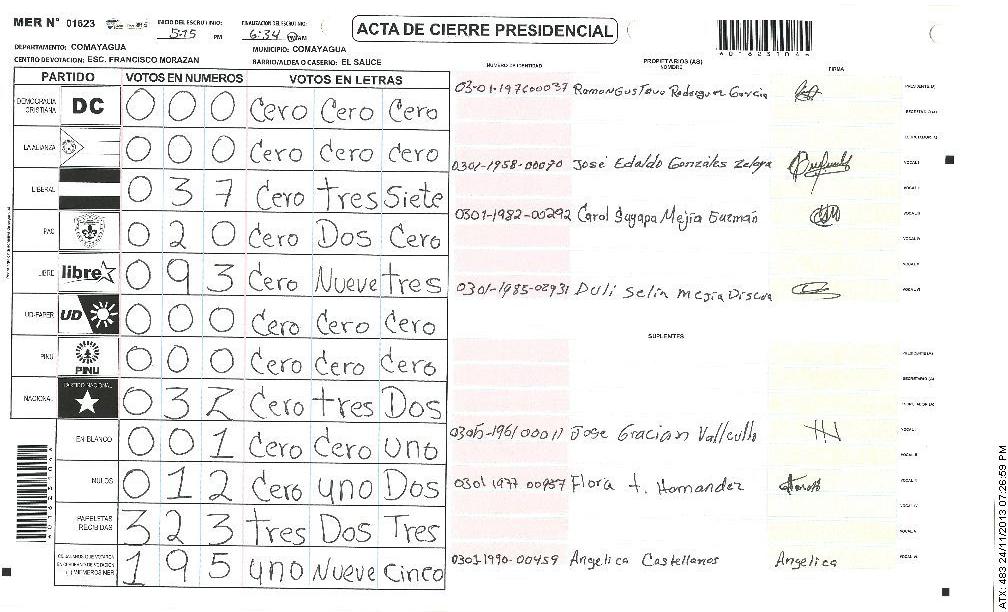 MER N° 01623
INICIO DEL ESCRUTINIO: 5:15 PM
FINALIZACION DEL ESCRUTINIO: 6:34 PM AM
ACTA DE CIERRE PRESIDENCIAL
DEPARTAMENTO: COMAYAGUA
MUNICIPIO: COMAYAGUA
CENTRO DE VOTACION: ESC. FRANCISCO MORAZAN
BARRIO/ALDEA O CASERIO: EL SAUCE
PARTIDO VOTOS EN NUMEROS VOTOS EN LETRAS
DEMOCRACIA CRISTIANA DC 0 0 0 Cero Cero Cero
LA ALIANZA 0 0 0 Cero Cero Cero
LIBERAL 0 3 7 Cero tres Siete
PAC 0 2 0 Cero Dos Cero
LIBRE libre 0 9 3 Cero Nueve tres
UD-FAPER UD 0 0 0 Cero Cero Cero
PINU PINU 0 0 0 Cero Cero Cero
NACIONAL PARTIDO NACIONAL 0 3 2 Cero tres Dos
EN BLANCO 0 0 1 Cero Cero uno
NULOS 0 1 2 Cero uno Dos
PAPELETAS RECIBIDAS 3 2 3 tres Dos Tres
1 9 5 uno Nueve Cinco
NUMERO DE IDENTIDAD
PROPIETARIOS (AS)
NOMBRE
FIRMA
Ramon Gustavo Rodriguez Garcia
PRESIDENTE (A)
SECRETARIO (A)
ESCRUTADOR (A)
0301-1958-00090 José Edaldo Gonzáles Zelaya
VOCAL I
VOCAL II
0301-1982-00292 Carol Suyapa Mejía Guzmán
VOCAL III
VOCAL IV
VOCAL V
0301-1985-02931 Duli Selin Mejia
VOCAL VI
SUPLENTES
PRESIDENTE (A)
SECRETARIO (A)
ESCRUTADOR (A)
Jose Gracian
VOCAL I
VOCAL II
0301 1977 00957 Flora t. Hernandez
VOCAL III
VOCAL IV
VOCAL V
0301-1990-00459 Angelica Castellanos Angelica
VOCAL VI
ATX: 483 24/11/2013 07:26:59 PM